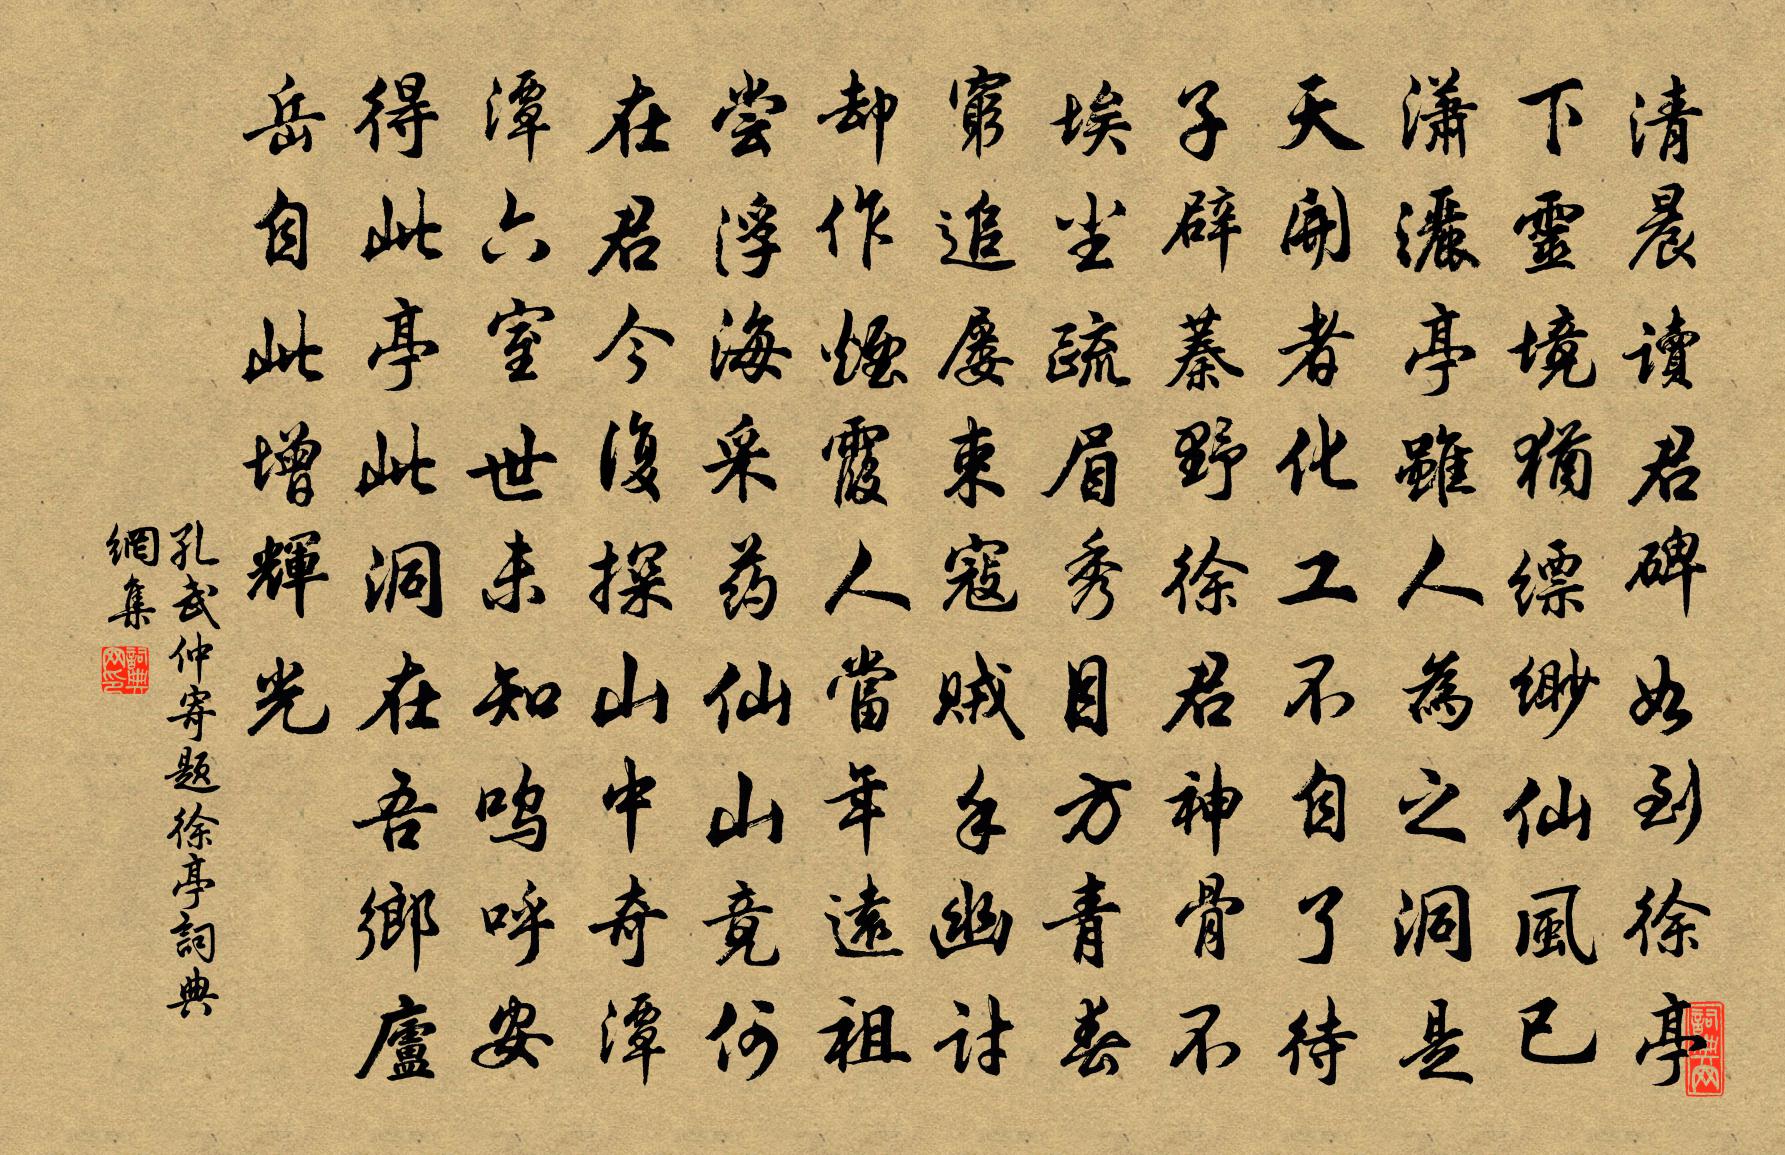 清晨讀君碑如到徐亭
下靈境猶縹緲仙風已
瀟灑亭雖人為之洞是
天開者化工不自了待
子辟蓁野徐君神骨不
埃尘疏眉秀目方青春
窮追屡束寇賊手幽討
却作煙霞人當年遠祖
尝浮海采药仙山竟何
在君今復探山中奇潭
潭六室世未知呜呼安
得此亭此洞在吾鄉廬
岳自此增輝光
孔武仲寄题徐亭詞典
網集
詞典网印
詞典网